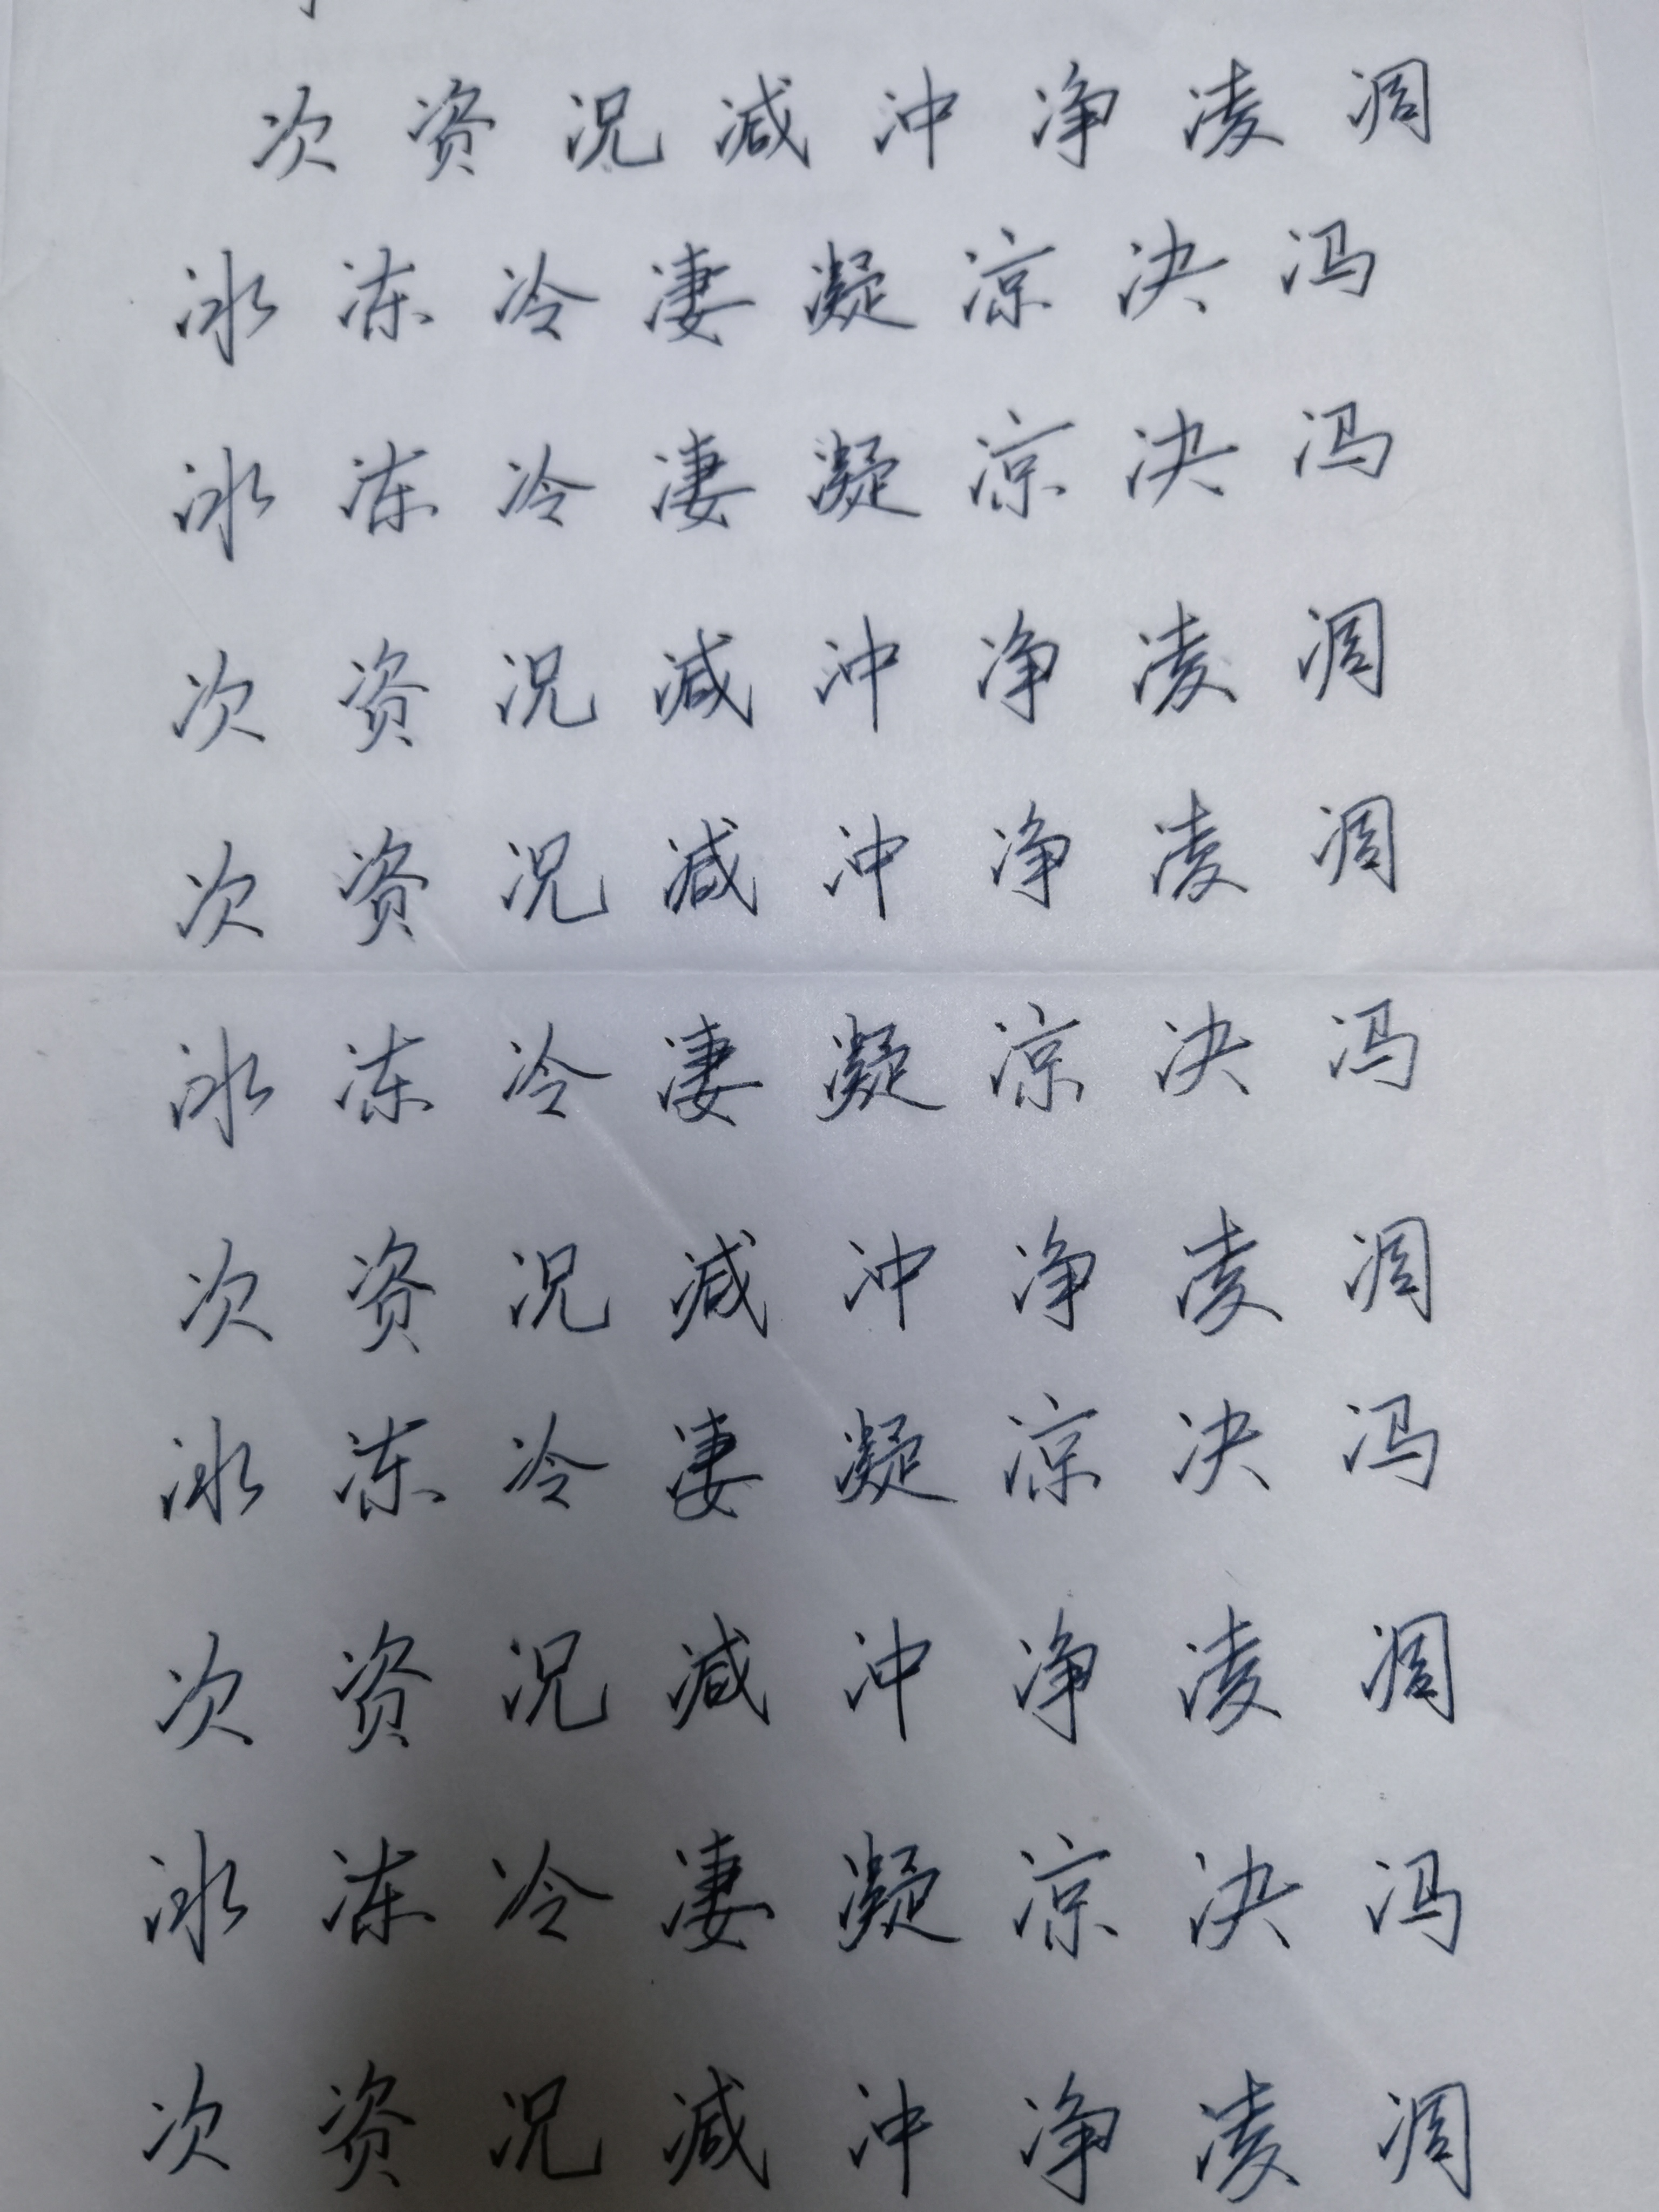 次 资 况 减 冲 净 凌 凋
冰 冻 冷 凄 凝 凉 决 冯
冰 冻 冷 凄 凝 凉 决 冯
次 资 况 减 冲 净 凌 凋
次 资 况 减 冲 净 凌 凋
冰 冻 冷 凄 凝 凉 决 冯
次 资 况 减 冲 净 凌 凋
冰 冻 冷 凄 凝 凉 决 冯
次 资 况 减 冲 净 凌 凋
冰 冻 冷 凄 凝 凉 决 冯
次 资 况 减 冲 净 凌 凋